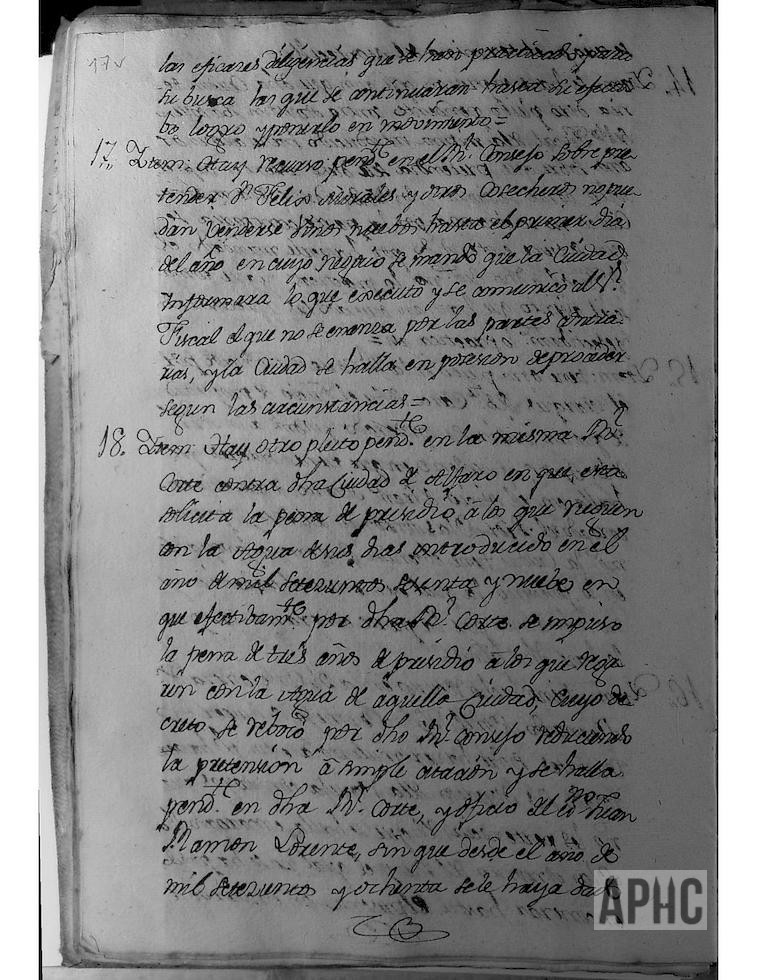 17v
las eficazes diligencias que se han practicado para
su busca las que se continuaran hasta su efecti
bo logro y ponerlo en movimiento =
17,, Ytem: Hay recurso pend.te en el Rl. Consejo sobre pre
tender Dn. Felix Morales y otros Cosecheros no pue
dan venderse vinos nuebos hasta el primer dia
del año, en cuyo negocio se mandó que la Ciudad
informara lo que executó y se comunicó al Sr.
Fiscal el que no se evacua por las partes contra
rias, y la Ciudad se halla en posesion de proceder
segun las circunstancias =
18. Ytem: Hay otro pleito pend.te en la misma Rl.
Corte contra dha Ciudad de Alfaro en que esta
solicita la pena de presidio á los que rieguen
con la Agua de sus dias introducido en el
año de mil setezientos sesenta y nuebe en
que efectibam.te por dha Rl. Corte se impuso
la pena de tres años de presidio á los que rega
ran con la Agua de aquella Ciudad, cuyo de
creto se rebocó por dho Rl. Consejo reduciendo
la pretensión á simple citazión y se halla
pend.te en dha Rl. Corte, y oficio del Juan
Ramon Lorente, sin que desde el año de
mil setezientos y ochenta se le haya dado
APHC